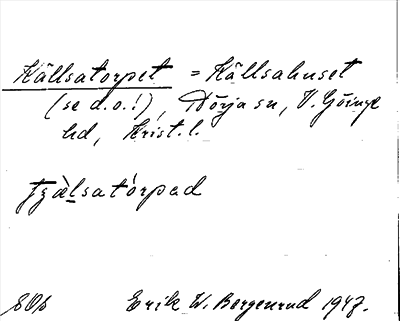 Källsatorpet = Källsahuset
(se d.o.!), Dörja sn, V. Göinge
hd, Krist. l.
tʒæ̀lsatórpad
Erik W. Borgenrud 1947.